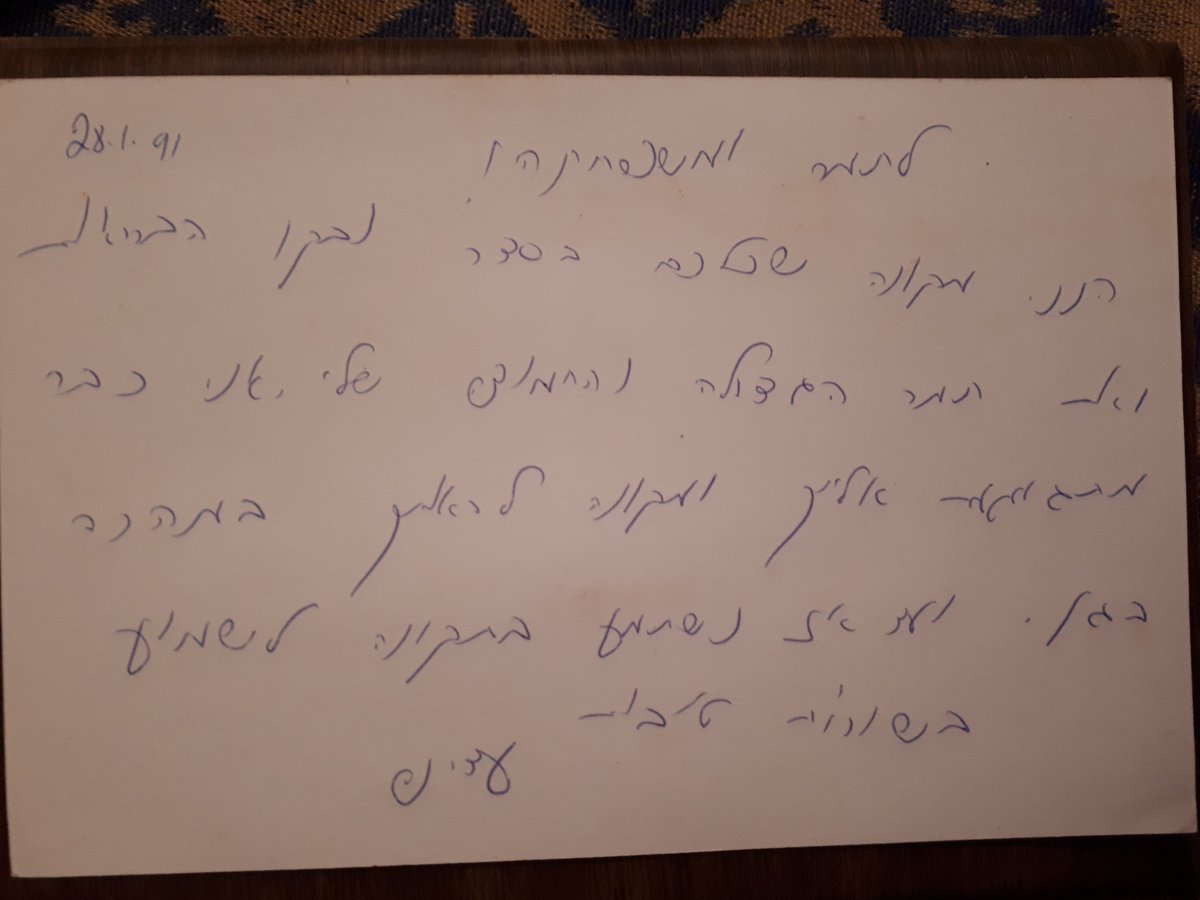 28.1.91
לתמר ומשפחתה!
הנני מקווה שכולכם בסדר ובקו הבריאות
ואת תמר הגדולה והחמודה שלי, אני כבר
מתגעגעת אליך ומקווה לראותך במהרה
בגן. ועד אז נשתמע בתקווה לשמוע
בשורות טובות